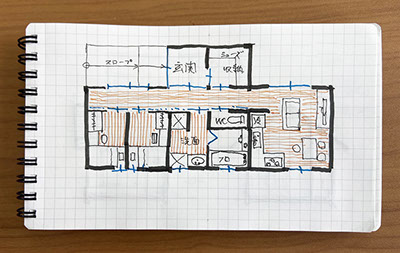 スロープ
玄関
シューズ
収納
洗面
WC
冷
フロ